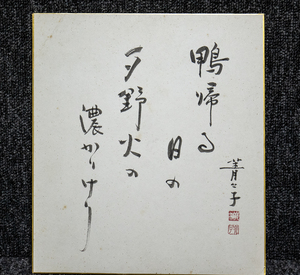 鴨帰る
日の
夕野火の
濃かりけり